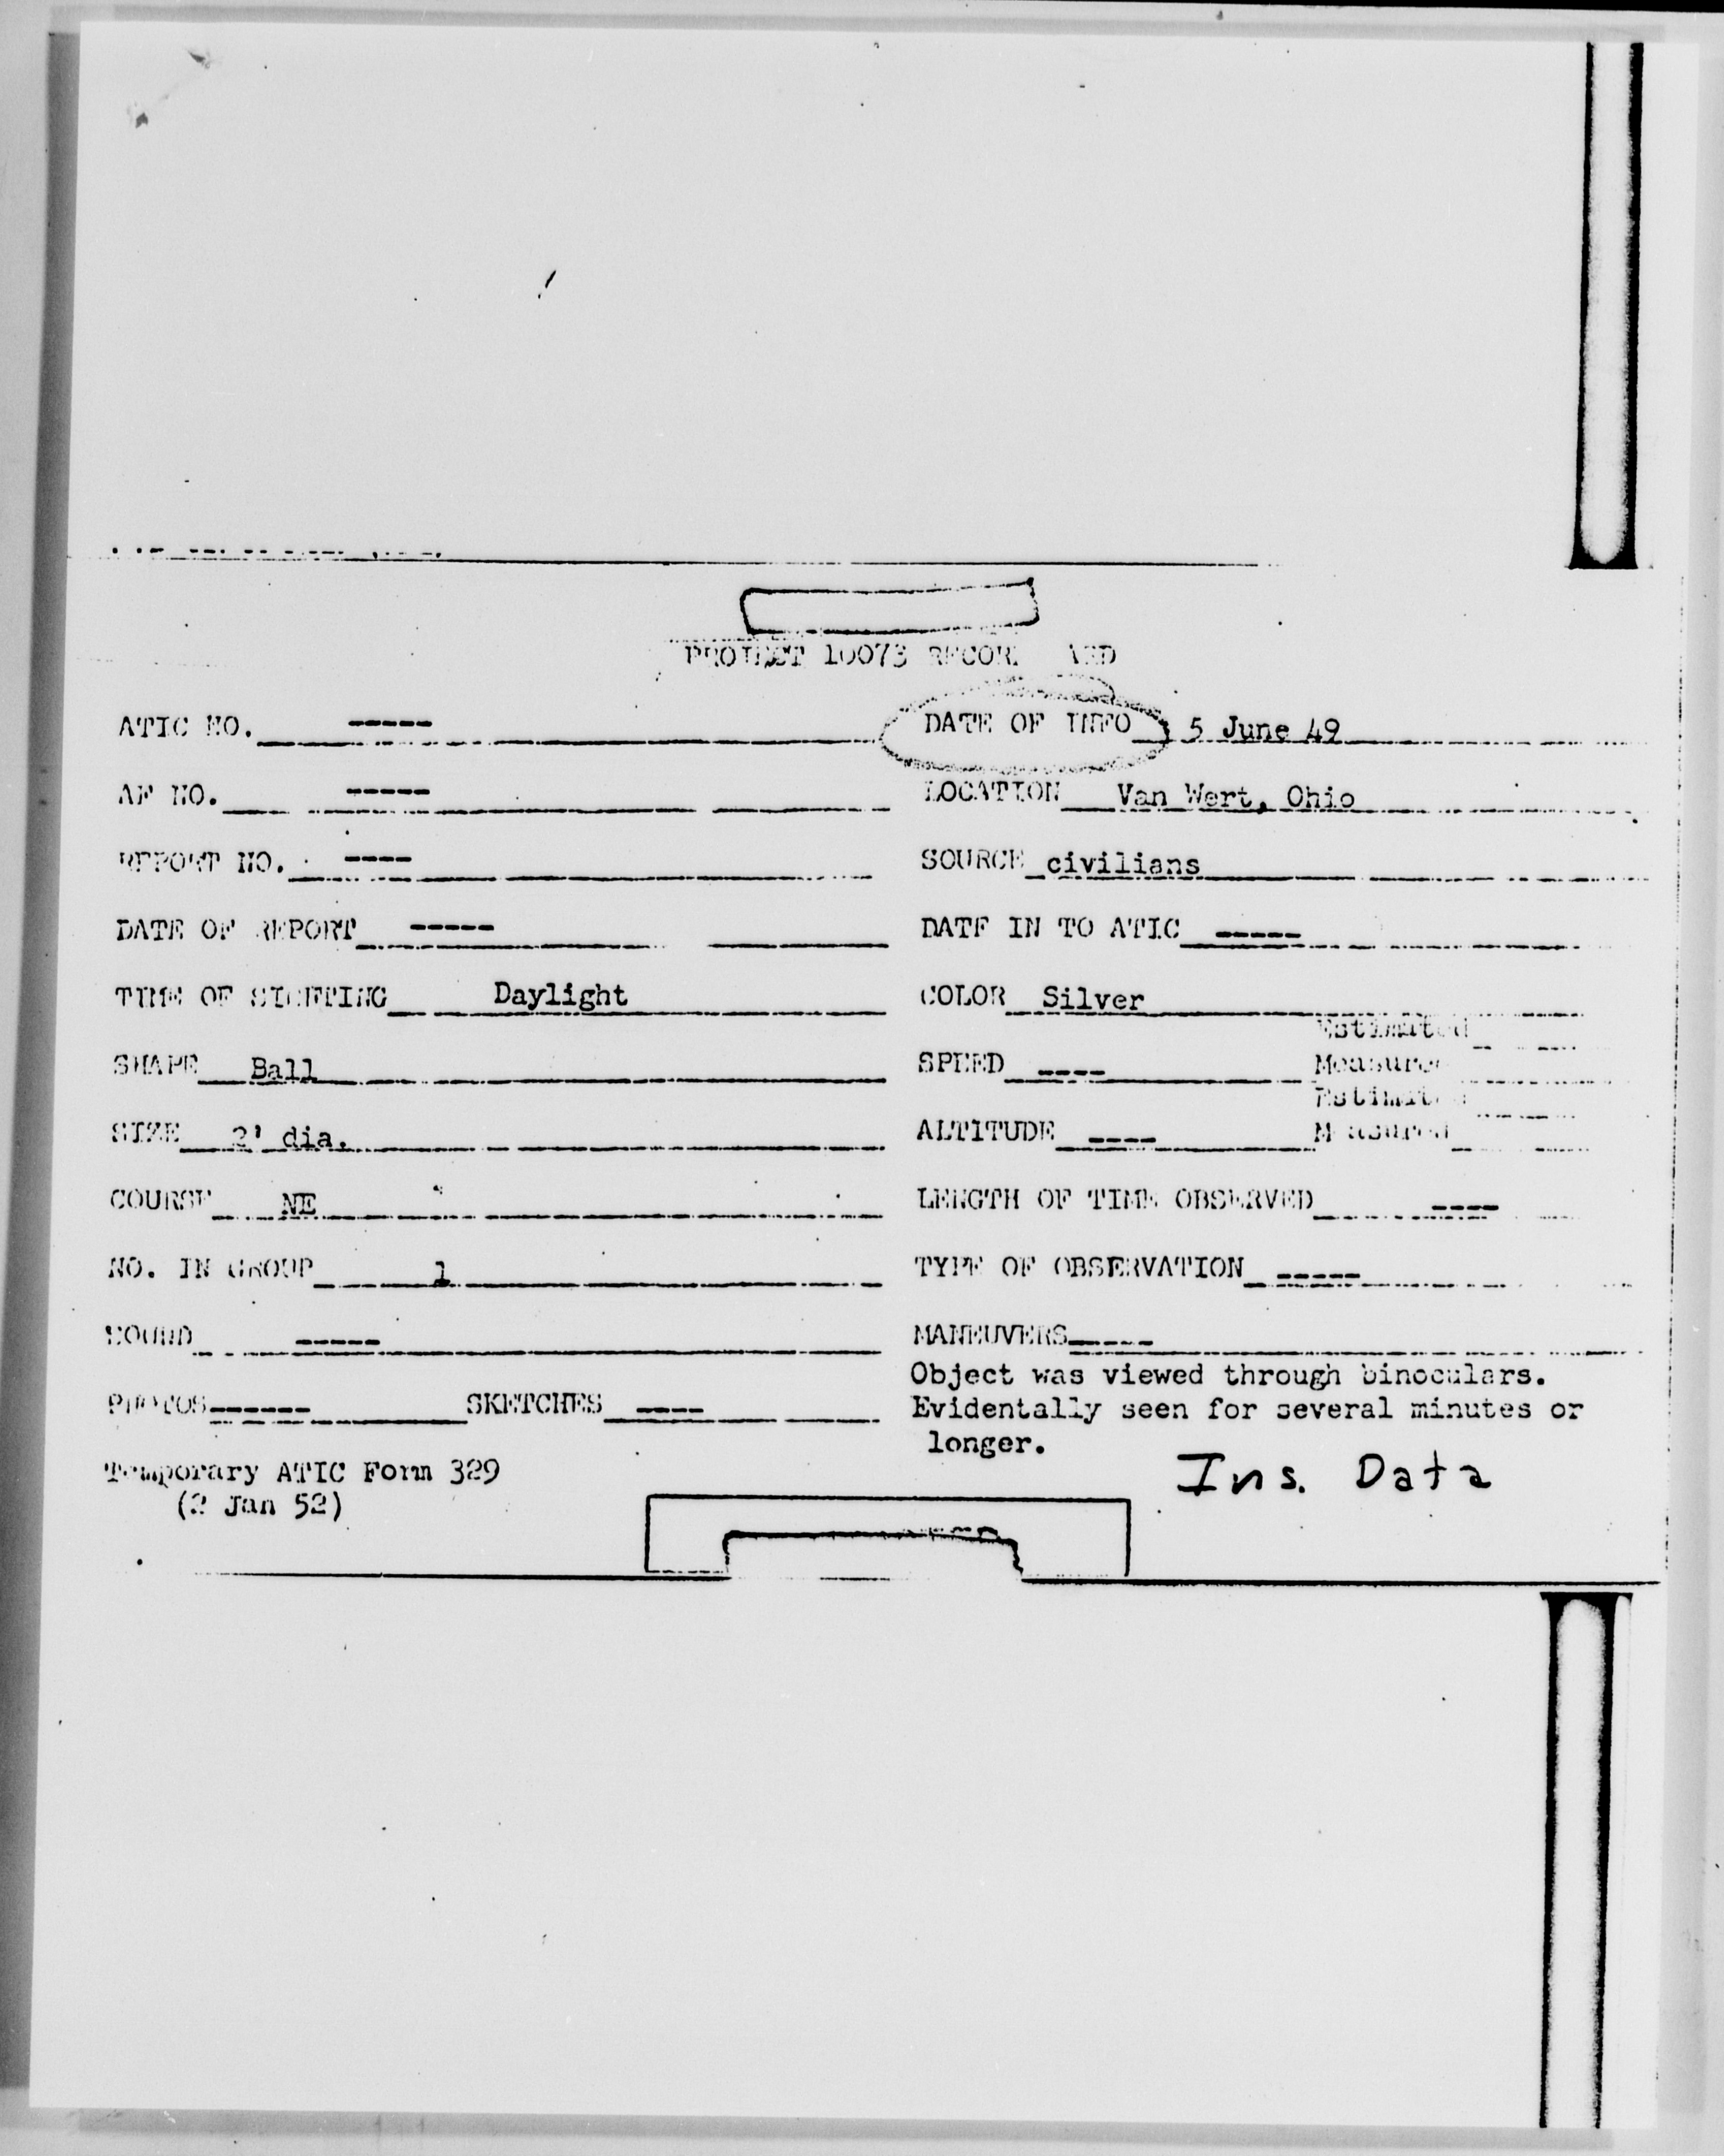 PROJECT 10073 RECORD CARD
ATIC NO. ----- DATE OF INFO 5 June 49
AF NO. ----- LOCATION Van Wert, Ohio
REPORT NO. ---- SOURCE civilians
DATE OF REPORT ----- DATE IN TO ATIC -----
TIME OF SIGHTING Daylight COLOR Silver
Estimated
SHAPE Ball SPEED ---- Measured
Estimated
SIZE 2' dia. ALTITUDE ---- Measured
COURSE NE LENGTH OF TIME OBSERVED ----
NO. IN GROUP 1 TYPE OF OBSERVATION -----
SOUND ----- MANEUVERS -----
Object was viewed through binoculars.
PHOTOS ------ SKETCHES ---- Evidentally seen for several minutes or
longer.
Temporary ATIC Form 329 Ins. Data
(2 Jan 52)